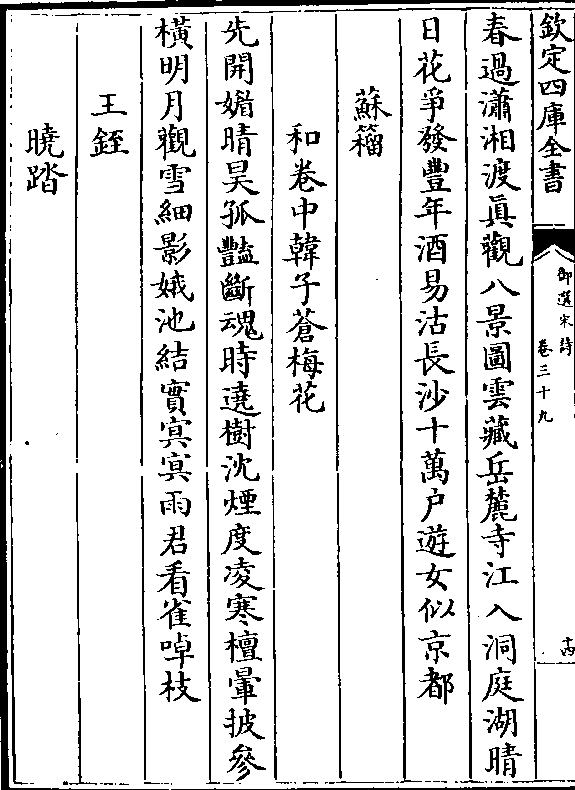 欽定四庫全書
御選宋詩
卷三十九
十四
春過瀟湘渡真觀八景圖雲藏岳麓寺江入洞庭湖晴
日花爭發豐年酒易沽長沙十萬户遊女似京都
蘇籀
和卷中韓子蒼梅花
先開媚晴昊孤豔斷魂時遶樹沈煙度凌寒檀暈披參
橫明月觀雪細影娥池結實㝠㝠雨君看雀啅枝
王銍
曉踏